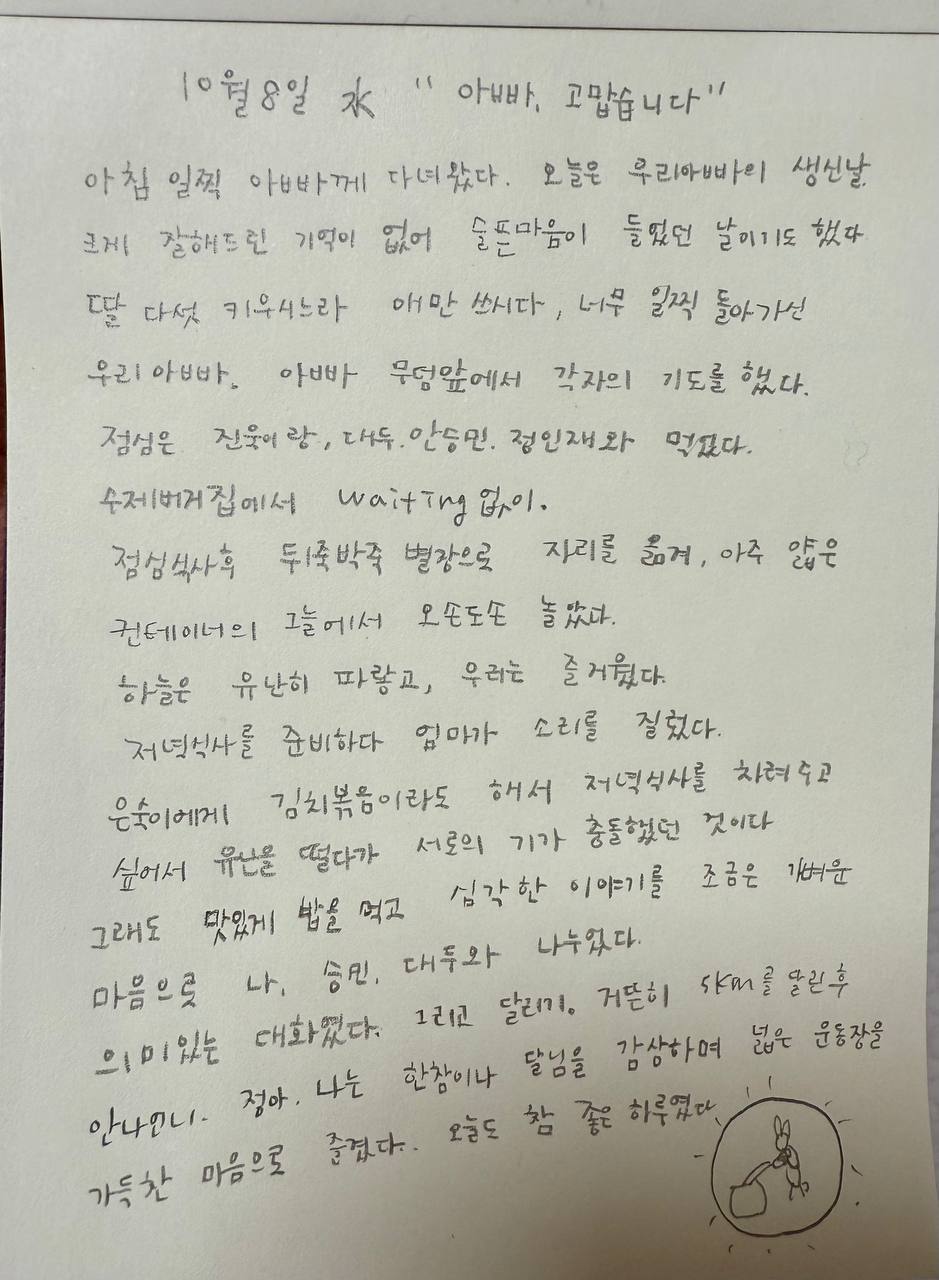 10월 8일 水 " 아빠, 고맙습니다"
아침 일찍 아빠께 다녀왔다. 오늘은 우리아빠의 생신날.
크게 잘해드린 기억이 없어 슬픈마음이 들었던 날이기도 했다
딸 다섯 키우시느라 애만 쓰시다, 너무 일찍 돌아가신
우리 아빠. 아빠 무덤앞에서 각자의 기도를 했다.
점심은 진욱이랑, 대두. 안승민. 정인재와 먹었다.
수제버거집에서 waiting 없이.
점심식사후 뒤죽박죽 별장으로 자리를 옮겨, 아주 얇은
컨테이너의 그늘에서 오손도손 놀았다.
하늘은 유난히 파랗고, 우리는 즐거웠다.
저녁식사를 준비하다 엄마가 소리를 질렀다.
은숙이에게 김치볶음이라도 해서 저녁식사를 차려주고
싶어서 유난을 떨다가 서로의 기가 충돌했던 것이다
그래도 맛있게 밥을 먹고 심각한 이야기를 조금은 가벼운
마음으로 나, 승민, 대두와 나누었다.
의미있는 대화였다. 그리고 달리기. 거뜬히 5km를 달린후
안나언니. 정아. 나는 한참이나 달님을 감상하며 넓은 운동장을
가득찬 마음으로 즐겼다.. 오늘도 참 좋은 하루였다